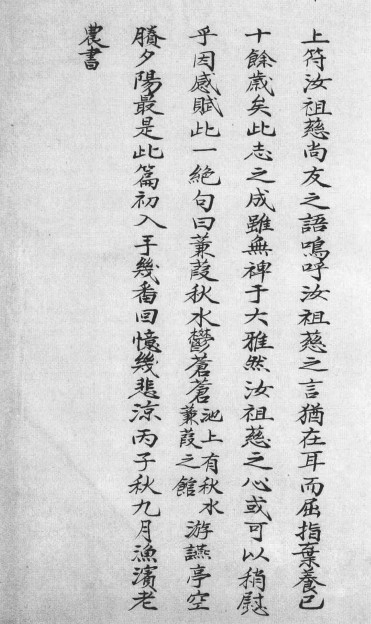 上符汝祖慈尚友之語嗚呼汝祖慈之言猶在耳而屈指棄養已
十餘歲矣此志之成雖無裨于大雅然汝祖慈之心或可以稍慰
乎因感賦此一絶句曰蒹葭秋水鬱蒼蒼池上有秋水蒹葭之館游讌亭空
賸夕陽最是此篇初入手幾番回憶幾悲涼丙子秋九月漁濱老
農書